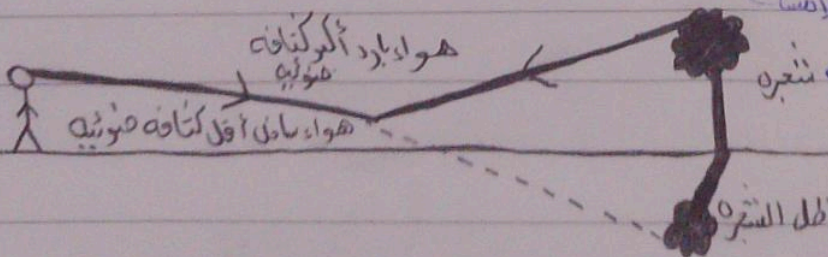 هواء بارد أكبر كثافه
ضوئيه
شجره
هواء ساخن أقل كثافه ضوئيه
ظل الشجره